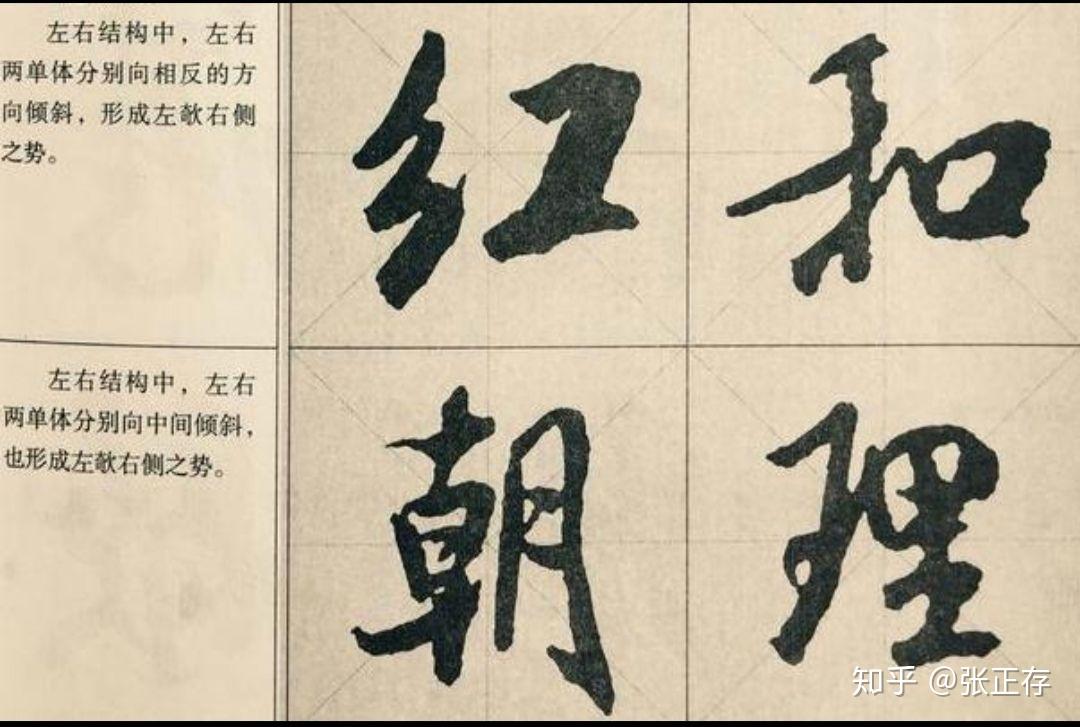 左右结构中，左右
两单体分别向相反的方
向倾斜，形成左欹右侧
之势。
红 和
左右结构中，左右
两单体分别向中间倾斜，
也形成左欹右侧之势。
朝 理
知乎 @张正存